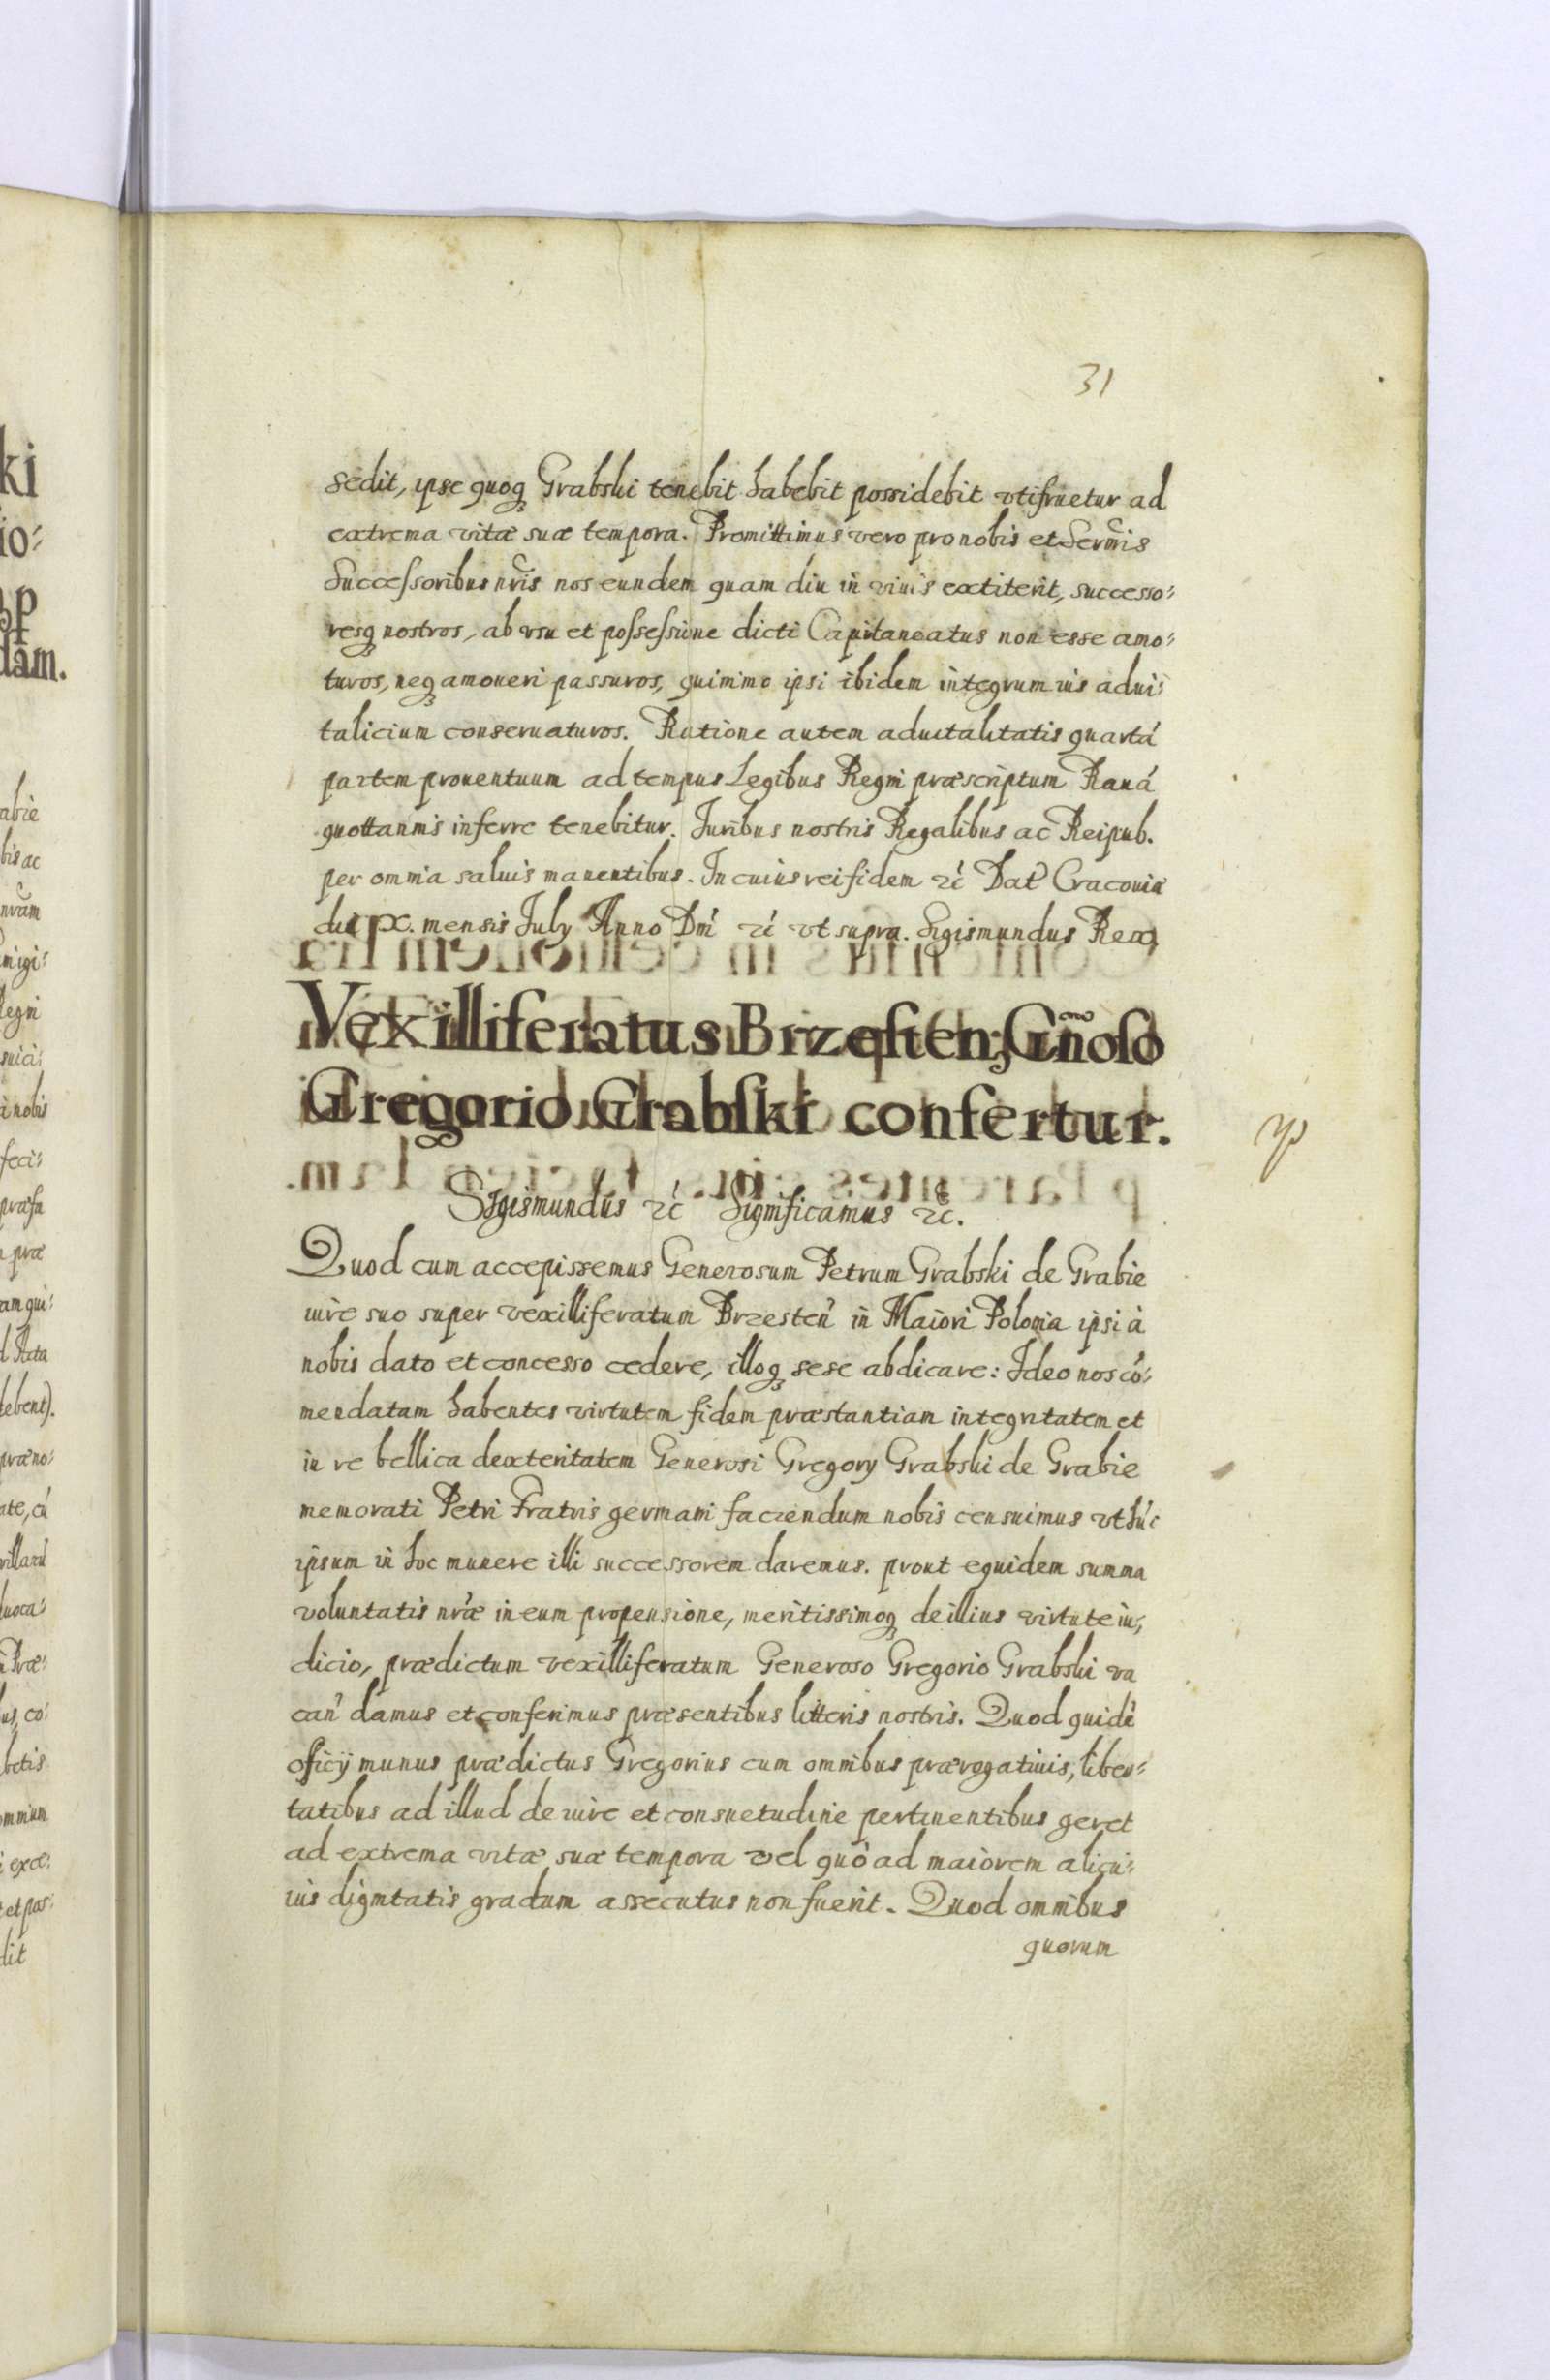 31
sedit, ipse quoq Grabski tenebit habebit possidebit vtifruetur ad
extrema vitæ suæ tempora. Promittimus vero pro nobis et Sermis
Successoribus nris nos eundem quam diu in viuis extiterit, successo:
resq nostros, ab vsu et possessione dicti Capitaneatus non esse amo:
turos, neq amoueri passuros, quimimo ipsi ibidem integrum ius adui:
talicium conseruaturos. Ratione autem aduitalitatis quartá
partem prouentuum ad tempus Legibus Regni præscriptum Rauá
quottannis inferre tenebitur. Iuribus nostris Regalibus ac Reipub.
per omnia saluis manentibus. In cuius rei fidem ꝛc̃ Dat Cracouiæ
die IX. mensis July Anno Dni ꝛc̃ vt supra. Sigismundus Rex
Vexilliferatus Brzesten; Gnoso
Gregorio Grabski confertur.
Sigismundus ꝛc̃ Significamus ꝛc̃.
Quod cum accepissemus Generosum Petrum Grabski de Grabie
iure suo super vexilliferatum Brzesteñ in Maiori Polonia ipsi à
nobis dato et concesso cedere, illoq sese abdicare: Ideo nos có:
mendatam habentes virtutem fidem præstantiam integritatem et
in re bellica dexteritatem Generosi Gregory Grabski de Grabie
memorati Petri Fratris germani faciendum nobis censuimus vt húc
ipsum in hoc munere illi successorem daremus. prout equidem summa
voluntatis nræ in eum propensione, meritissimoq de illius virtute iu:
dicio, prædictum vexilliferatum Generoso Gregorio Grabski va
cañ damus et conferimus præsentibus litteris nostris. Quod quidé
officij munus prædictus Gregorius cum omnibus prærogatiuis, liber:
tatibus ad illud de iure et consuetudine pertinentibus geret
ad extrema vitæ suæ tempora vel quò ad maiorem alicu:
ius dignitatis gradum assecutus non fuerit. Quod omnibus
quorum